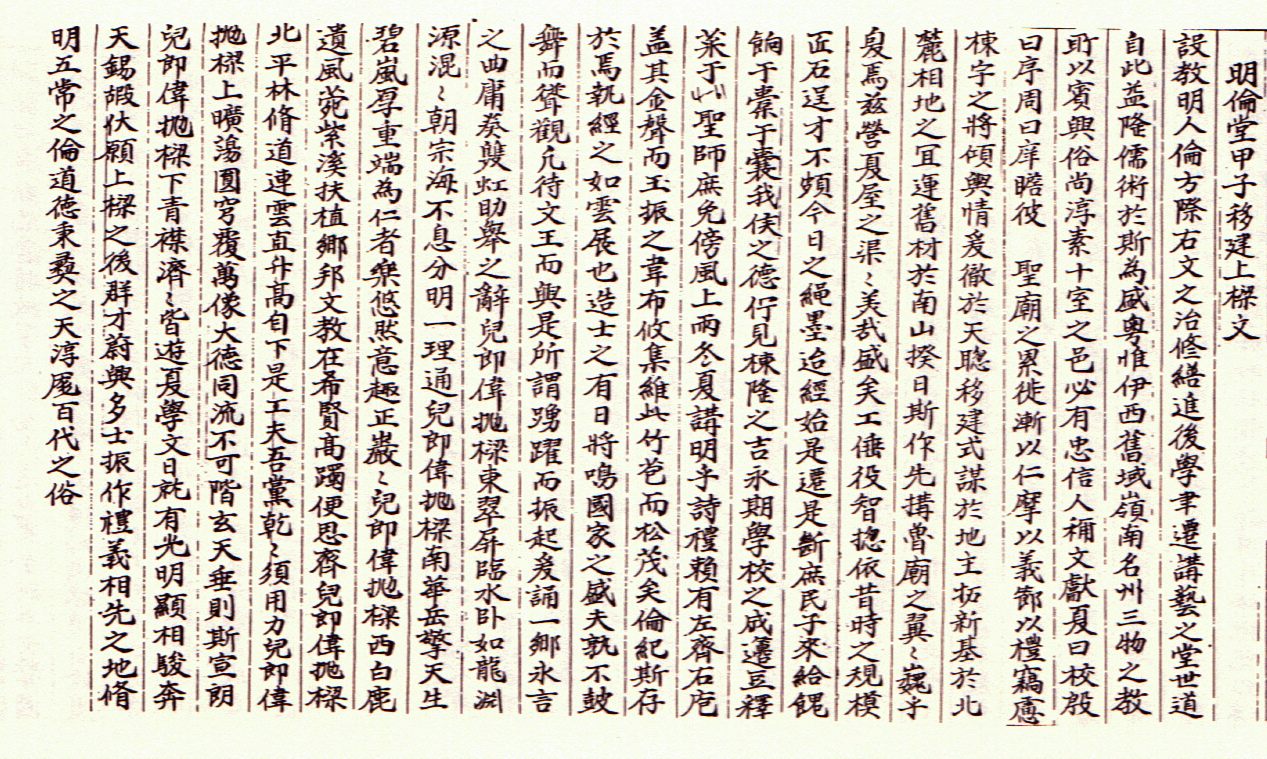 明倫堂甲子移建上樑文
設教明人倫方際右文之治修繕進後學聿遷講藝之堂世道
自此益隆儒術於斯為盛粤惟伊西舊域嶺南名州三物之教
所以賓興俗尚淳素十室之邑必有忠信人稱文獻夏曰校殷
曰序周曰庠瞻彼 聖廟之累徙漸以仁摩以義節以禮竊慮
棟宇之將傾輿情爰徹於天聰移建式謀於地主拓新基於北
麓相地之宜運舊材於南山揆日斯作先搆曾廟之翼〻巍乎
奐焉玆營夏屋之渠〻美哉盛矣工倕役智揔依昔時之規模
匠石逞才不頗今日之繩墨迨經始是遷是斷庶民子來給餽
餉于橐于囊我侯之德佇見棟隆之吉永期學校之成籩豆釋
菜于以聖師庶免傍風上雨冬夏講明乎詩禮賴有左齊右庖
盖其金聲而玉振之韋布攸集維此竹苞而松茂矣倫紀斯存
於焉執經之如雲展也造士之有日將鳴國家之盛夫孰不鼓
舞而聳觀凡待文王而興是所謂踴躍而振起爰誦一鄉永言
之曲庸奏雙虹助舉之辭兒郎偉抛樑東翠屛臨水卧如龍淵
源混〻朝宗海不息分明一理通兒郎偉抛樑南華岳擎天生
碧嵐厚重端為仁者樂悠然意趣正巖〻兒郎偉抛樑西白鹿
遺風菀紫溪扶植鄉邦文教在希賢高躅便思齊兒郎偉抛樑
北平林脩道連雲直升高自下是工夫吾黨乾〻須用力兒郎偉
抛樑上曠蕩圓穹覆萬像大德同流不可階玄天垂則斯宣朗
兒郎偉抛樑下青襟濟〻皆遊夏學文日就有光明顯相駿奔
天錫嘏伏願上樑之後群才蔚興多士振作禮義相先之地脩
明五常之倫道德秉彛之天淳厖百代之俗